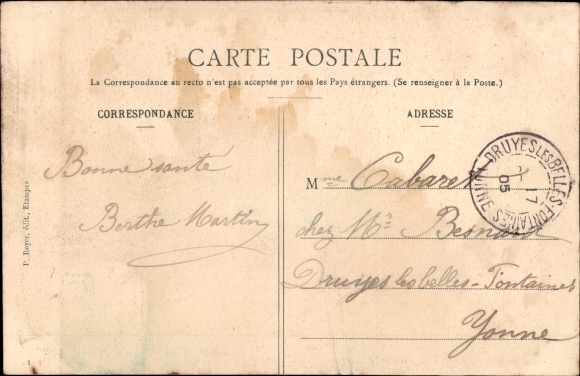 CARTE POSTALE
La Correspondance au recto n'est pas acceptée par tous les Pays étrangers. (Se renseigner à la Poste.)
CORRESPONDANCE
ADRESSE
Bonne santé
Berthe Martin
Mme Cabaret
chez Mr
Druyes les belles-Fontaines
Yonne
DRUYES LES BELLES-FONTAINES YONNE
17
05
Royer, édit., Étampes